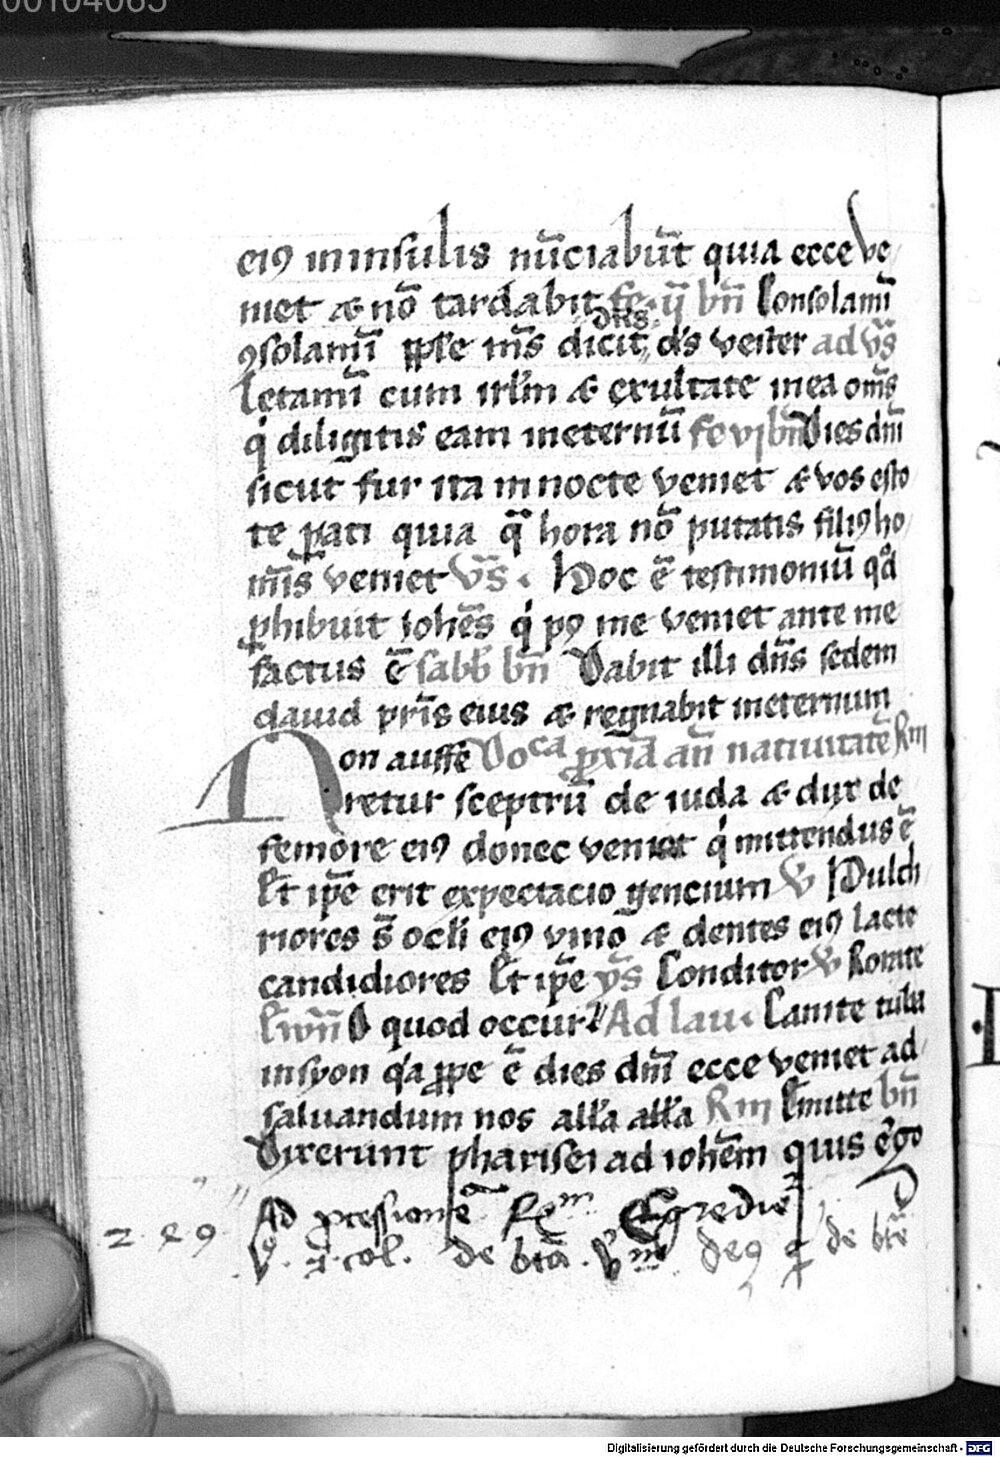 00104065
eiꝰ in insulis nūciabūt quia ecce ve/
niet ⁊ nō tardabit fe· ij bn̄ Consolamī
ꝯsolamī pp̄le mꝰs dicit dn̄s ds̄ vester ad vs̄
Letamī cum irl̄m ⁊ exultate in ea oms̄
qͥ diligitis eam in eternū fe vj bn̄ Dies dnī
sicut fur ita in nocte veniet ⁊ vos esto
te ꝑati quia q̄ hora nō putatis filiꝰ ho/
mīs veniet vs̄· Hoc ē testimoniū qd̄
ꝑhibuit iohēs qͥ pꝰ me veniet ante me
factus ē sabb̄ bn̄ Dabit illi dn̄s sedem
dauid pr̄is eius ⁊ regnabit in eternum
Non auffe Do ca ꝓxīa an̄ natiuitatē Rm
retur sceptrū de iuda ⁊ dux de
femore eiꝰ donec veniat qͥ mittendus ē
Et ip̄e erit expectacio gencium v̄ Pulch
riores s̄ ocl̄i eiꝰ vino ⁊ dentes eiꝰ lacte
candidiores Et ip̄e ys̄ Conditor v̄ Rorate
Ewn̄ O quod occur̄ Ad lau· Canite tuba
in syon qͣ ꝓpe ē dies dnī ecce veniet ad/
saluandum nos all̄a all̄a Rm Emitte bn̄
Dixerunt pharisei ad iohēm quis ergo
Ad ꝓcessionē Rm Egredieͭ
249 V. 2. col. de btā. Vm deꝰ q de btē
Digitalisierung gefördert durch die Deutsche Forschungsgemeinschaft - DFG